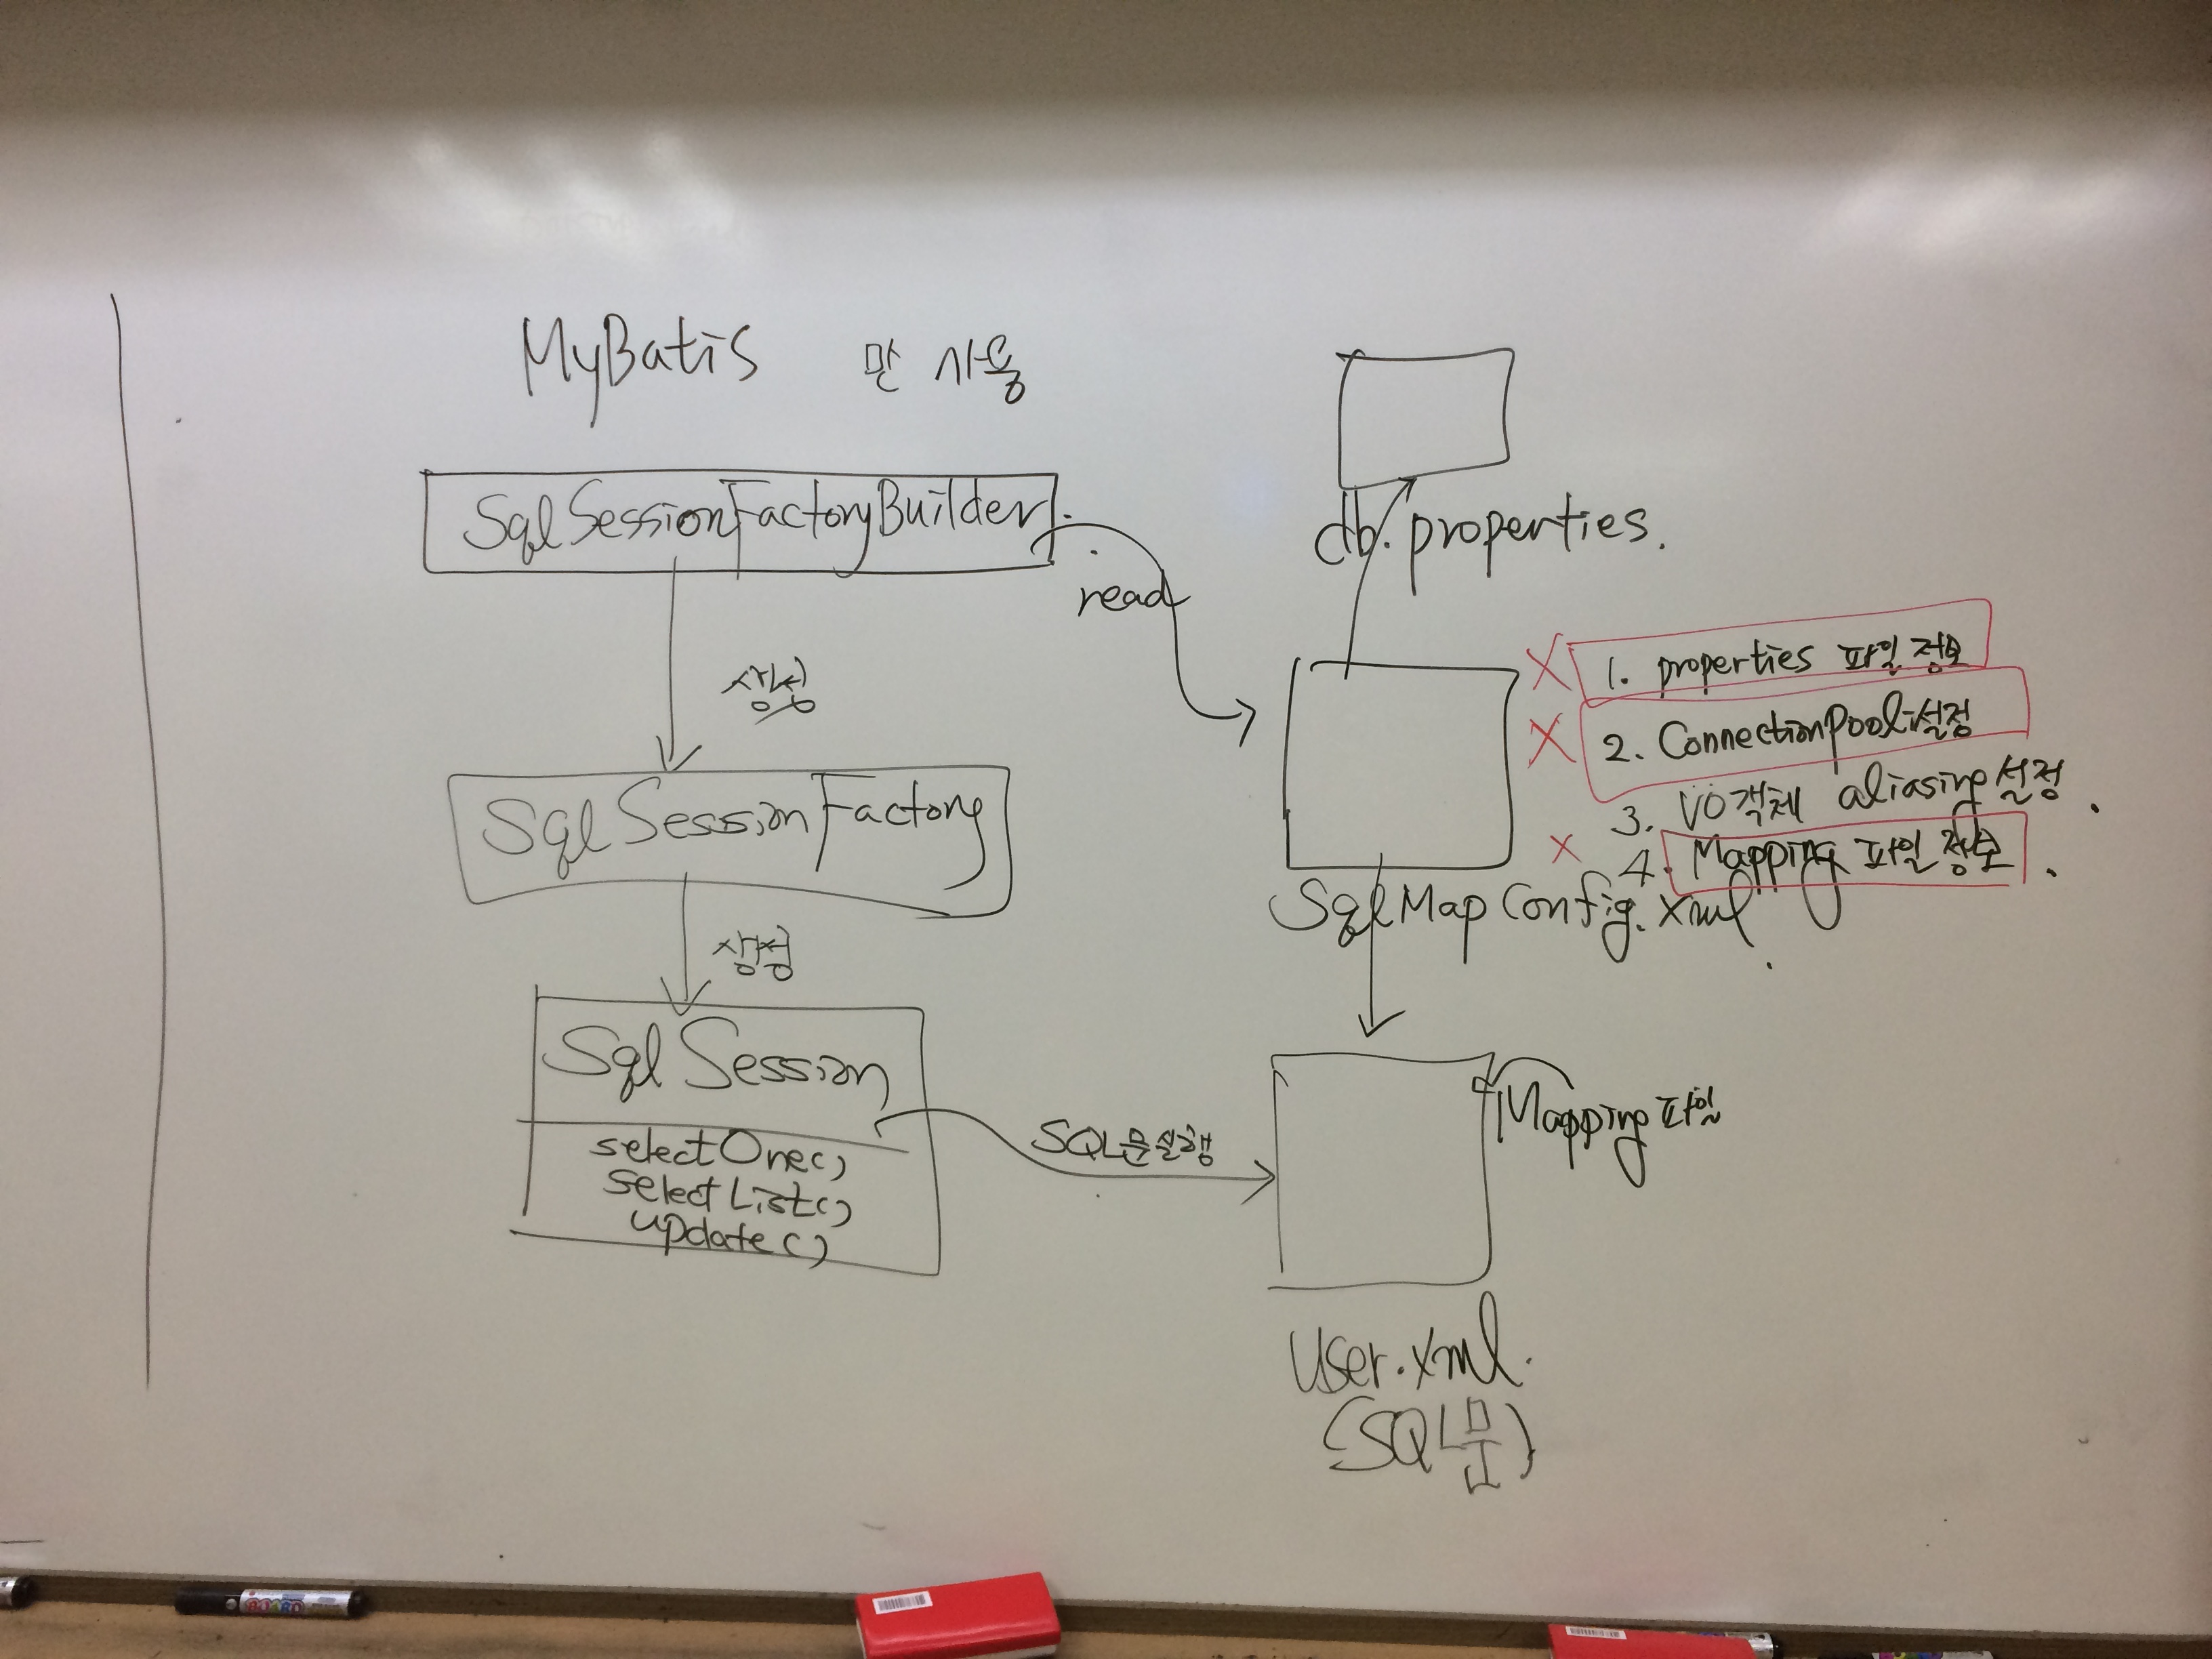 MyBatis 만 사용
SqlSessionFactoryBuilder
read
생성
SqlSessionFactory
생성
SqlSession
selectOne()
selectList()
update()
SQL문실행
db.properties.
1. properties 파일 정보
2. ConnectionPool 설정
3. VO객체 aliasing 설정.
4. Mapping 파일 정보.
SqlMapConfig.xml
Mapping 파일
User.xml.
(SQL문)